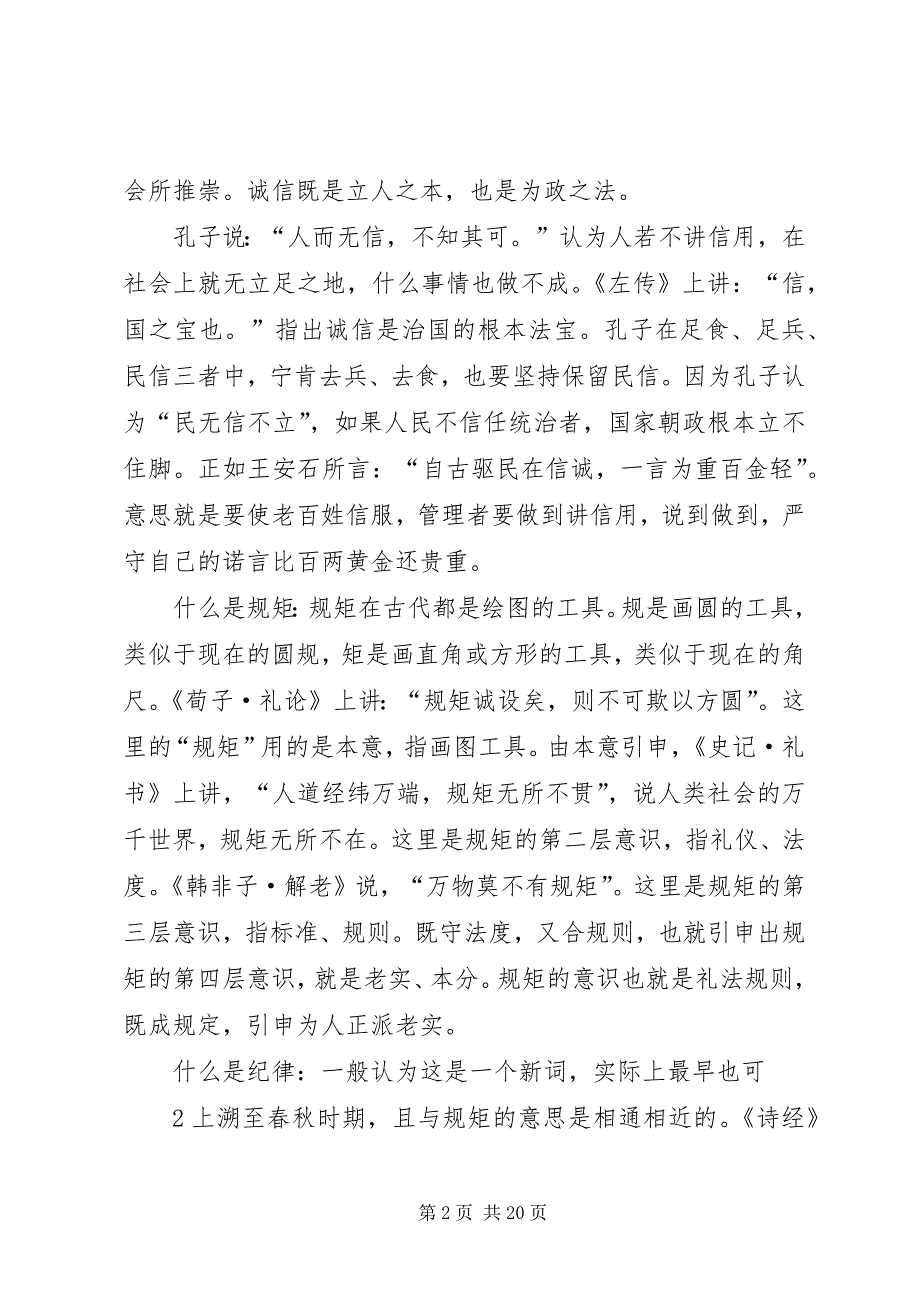 会所推崇。诚信既是立人之本，也是为政之法。
孔子说：“人而无信，不知其可。”认为人若不讲信用，在
社会上就无立足之地，什么事情也做不成。《左传》上讲：“信，
国之宝也。”指出诚信是治国的根本法宝。孔子在足食、足兵、
民信三者中，宁肯去兵、去食，也要坚持保留民信。因为孔子认
为“民无信不立”，如果人民不信任统治者，国家朝政根本立不
住脚。正如王安石所言：“自古驱民在信诚，一言为重百金轻”。
意思就是要使老百姓信服，管理者要做到讲信用，说到做到，严
守自己的诺言比百两黄金还贵重。
什么是规矩：规矩在古代都是绘图的工具。规是画圆的工具，
类似于现在的圆规，矩是画直角或方形的工具，类似于现在的角
尺。《荀子·礼论》上讲：“规矩诚设矣，则不可欺以方圆”。这
里的“规矩”用的是本意，指画图工具。由本意引申，《史记·礼
书》上讲，“人道经纬万端，规矩无所不贯”，说人类社会的万
千世界，规矩无所不在。这里是规矩的第二层意识，指礼仪、法
度。《韩非子·解老》说，“万物莫不有规矩”。这里是规矩的第
三层意识，指标准、规则。既守法度，又合规则，也就引申出规
矩的第四层意识，就是老实、本分。规矩的意识也就是礼法规则，
既成规定，引申为人正派老实。
什么是纪律：一般认为这是一个新词，实际上最早也可
2 上溯至春秋时期，且与规矩的意思是相通相近的。《诗经》
第 2 页 共 20 页